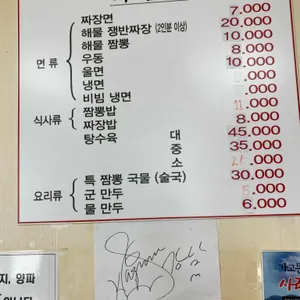 짜장면 7.000
해물 쟁반짜장 (2인분 이상) 20.000
해물 짬뽕 10.000
면 류 우동 8.000
울면 10.000
냉면 .000
비빔 냉면 .000
식사류 짬뽕밥 11.000
짜장밥 8.000
탕수육 대 45.000
중 35.000
소 .000
요리류 특 짬뽕 국물 (술국) 30.000
군 만두 5.000
물 만두 6.000
지, 양파